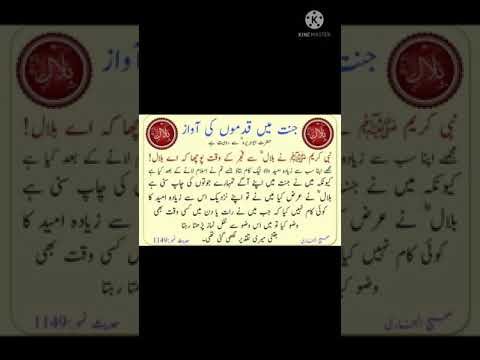 KINEMASTER
بلال
بلال
جنت میں قدموں کی آواز
حضرت ابوہریرہؓ سے روایت ہے
نبی کریم ﷺ نے بلالؓ سے فجر کے وقت پوچھا کہ اے بلال!
مجھے اپنا سب سے زیادہ والا نیک کام بتاؤ جسے تم نے اسلام لانے کے بعد کیا ہے
کیونکہ میں نے جنت میں اپنے آگے تمہارے جوتوں کی چاپ سنی ہے
بلالؓ نے عرض کیا میں نے تو اپنے نزدیک اس سے زیادہ امید کا
کوئی کام نہیں کیا کہ جب میں نے رات یا دن میں کسی وقت بھی
وضو کیا تو میں اس وضو سے نفل نماز پڑھتا رہتا
جتنی میری تقدیر لکھی گئی تھی۔
صحیح البخاری
حدیث نمبر:1149